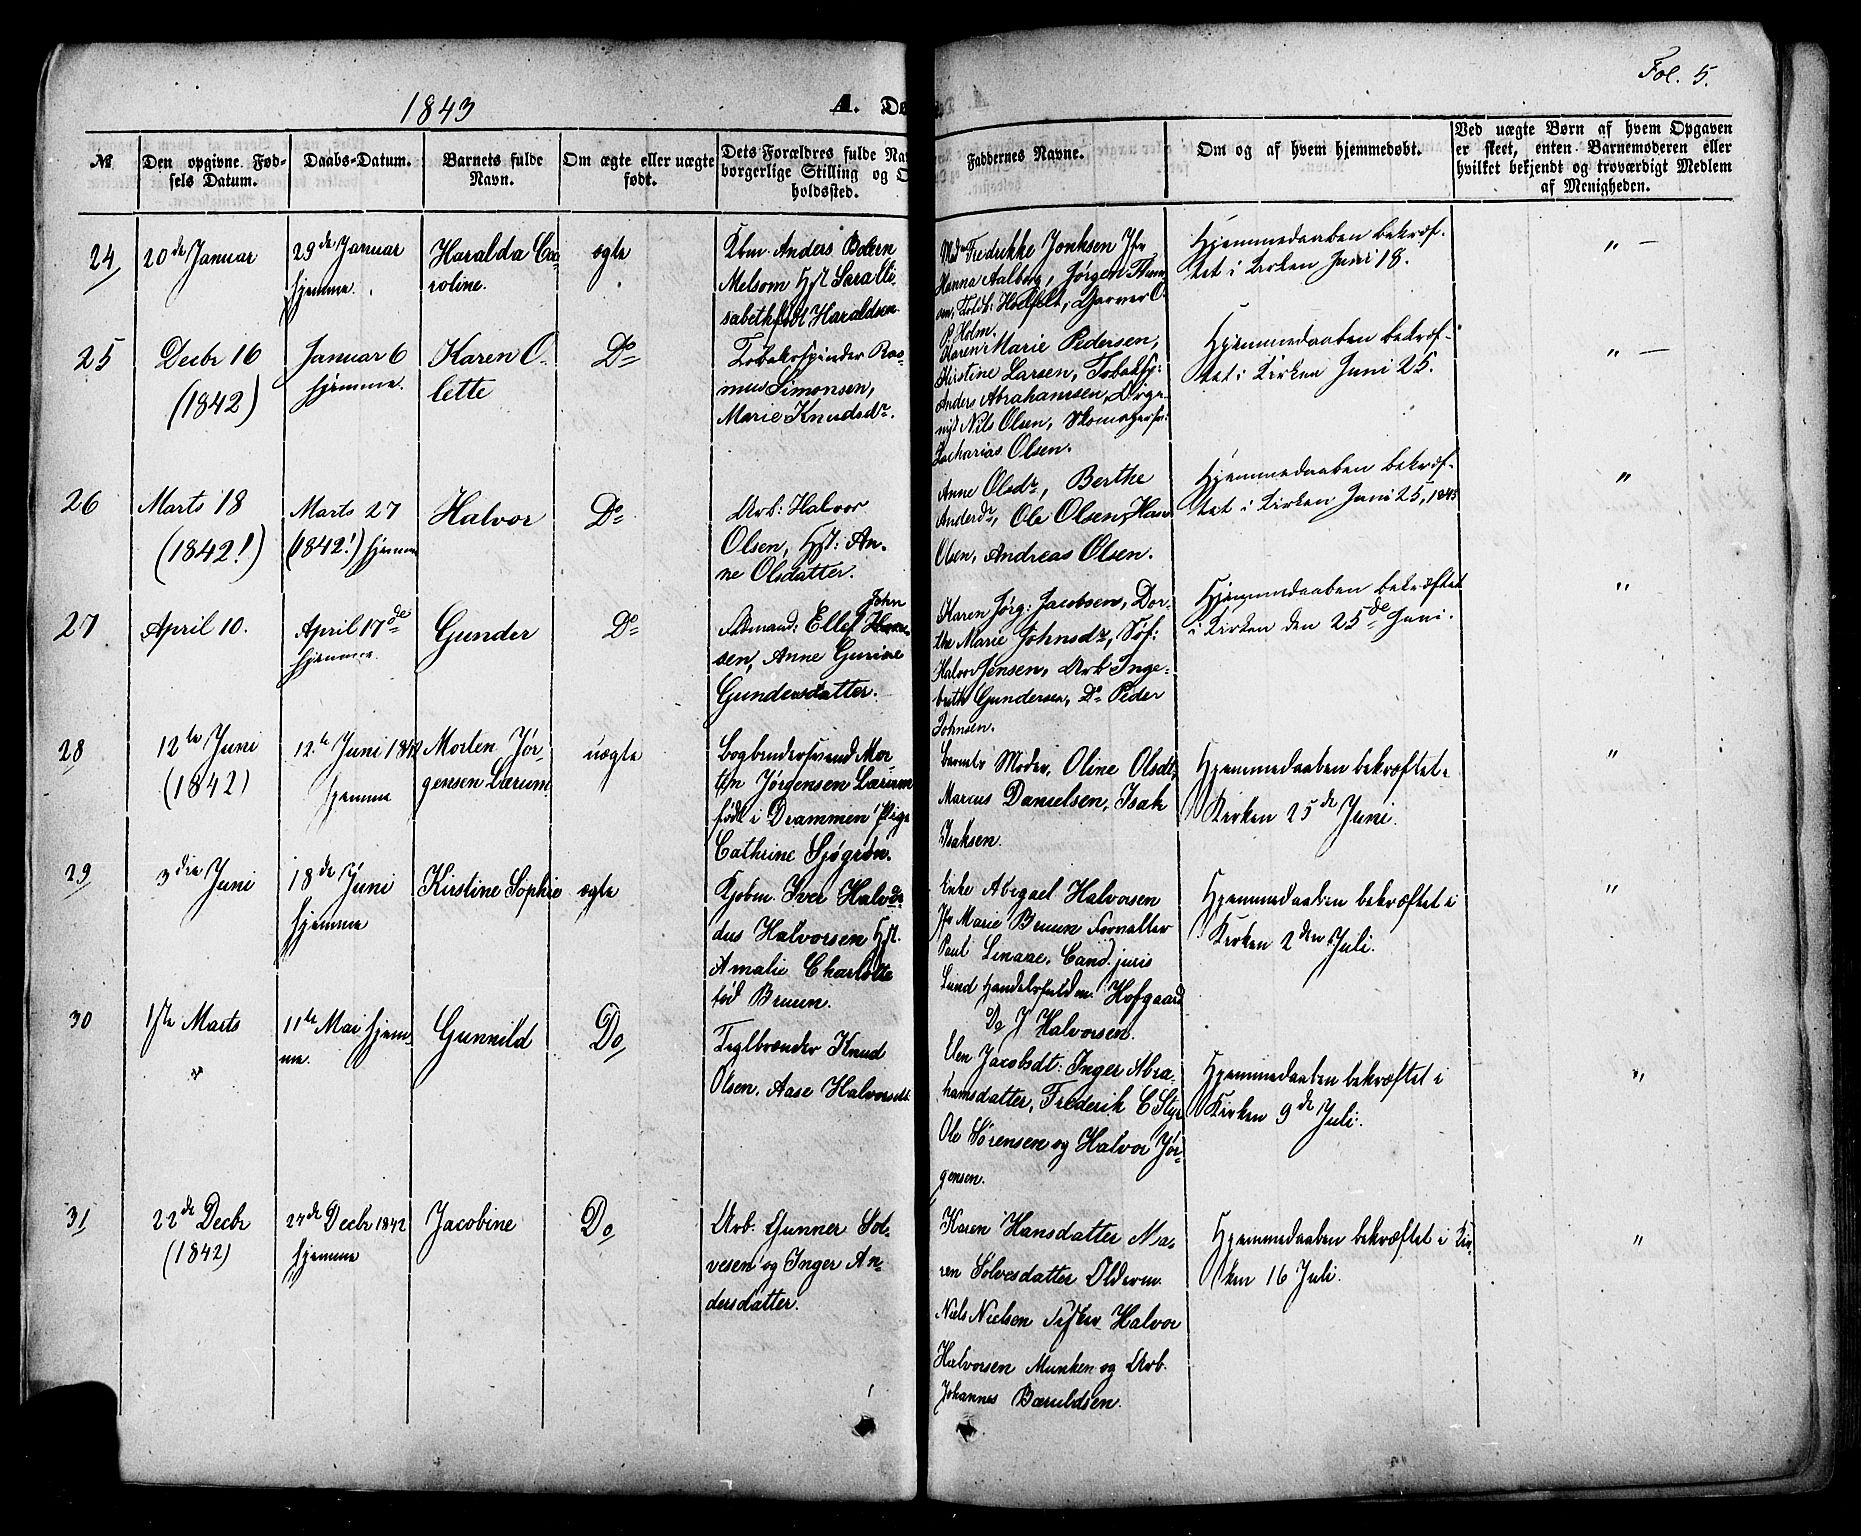 Fol. 5.
1843
A. Dø
№
Den opgivne Fød-
sels Datum.
Daabs-Datum.
Barnets fulde
Navn.
Om ægte eller uægte
født.
Dets Forældres fulde Na
borgerlige Stilling og O
holdssted.
Faddernes Navne.
Om og af hvem hjemmedøbt.
Ved uægte Børn af hvem Opgaven
er skeet, enten Barnemoderen eller
hvilket bekjendt og troværdigt Medlem
af Menigheden.
24
20de Januar
29de Januar
hjemme.
Haralda Ca-
roline.
ægte
Kbm. Anders
Melsom Hst. Sara Eli-
sabeth født Haraldsen
Mad. Fredrikke Jonksen Jfr
Hanna Aalborg, Jørgen Thom
Garver O.
P. Holm.
Hjemmedaaben bekræf-
tet i Kirken Juni 18.
" —
25
Decbr 16
(1842)
Januar 6
hjemme.
Karen O-
lette
Do
Tobakspinder Ras-
mus Simonsen,
Marie Knudsdr.
Karen Marie Pedersen,
Kirstine Larsen, Tobaksp:
Anders Abrahamsen,
Nils Olsen, Skomagersv:
Zacharias Olsen.
Hjemmedaaben bekræf-
tet i Kirken Juni 25.
" —
26
Marts 18
(1842!)
Marts 27
(1842!) hjemme
Halvor
Do
Arb: Halvor
Olsen, Hst: An-
ne Olsdatter.
Anne Olsdr, Berthe
Andersdr, Ole Olsen, Hans
Olsen, Andreas Olsen.
Hjemmedaaben bekræf-
tet i Kirken Juni 25, 1843
"
27
April 10.
April 17de
hjemme.
Gunder
Do
John
Ellef
sen, Anne Gurine
Gundersdatter.
Karen Jørg: Jacobsen, Dor-
the Marie Johnsdr, Søf:
Halvor Jensen, Arb Inge-
breth Gundersen, Do Peder
Johnsen.
Hjemmedaaben bekræftet
i Kirken den 25de Juni.
"
28
12te Juni
(1842)
12te Juni 1842
hjemme
Morten Jør-
gensen Lærum
uægte
Bogbindersvend Mor-
ten Jørgensen Lærum
født i Drammen Pige
Cathrine Sjøgrøn.
Barnets Moder, Oline Olsdt,
Marcus Danielsen, Isak
Isaksen.
Hjemmedaaben bekræftet i
Kirken 25de Juni.
"
29
3die Juni
18de Juni
hjemme
Kirstine Sophie
ægte
Kjøbm. Iver
dus Halvorsen Hst.
Amalie Charlotte
fød Bruun.
Enke Abigael Halvorsen
Jfr Marie Bruun Forvalter
Paul Linaae, Cand. juris
Lund Handelsfuldm. Hofgaard
Do J Halvorsen.
Hjemmedaaben bekræftet i
Kirken 2den Juli.
"
30
1ste Marts
11te Mai hjem-
me.
Gunnild
Do
Teglbrænder Knud
Olsen, Aase Halvorsdt
Elen Jacobsdt: Inger Abra-
hamsdatter, Frederik C Styr
Ole Sørensen og Halvor Jør-
gensen.
Hjemmedaaben bekræftet i
Kirken 9de Juli.
"
31
22de Decbr
(1842)
24de Decbr 1842
hjemme
Jacobine
Do
Arb. Gunner Sol-
vesen og Inger An-
dersdatter.
Karen Hansdatter Ma-
ren Solvesdatter Olderm.
Niels Nielsen Fisker Halvor
Halvorsen Munken og Arb.
Johannes
Hjemmedaaben bekræftet i Kir-
ken 16 Juli.
"